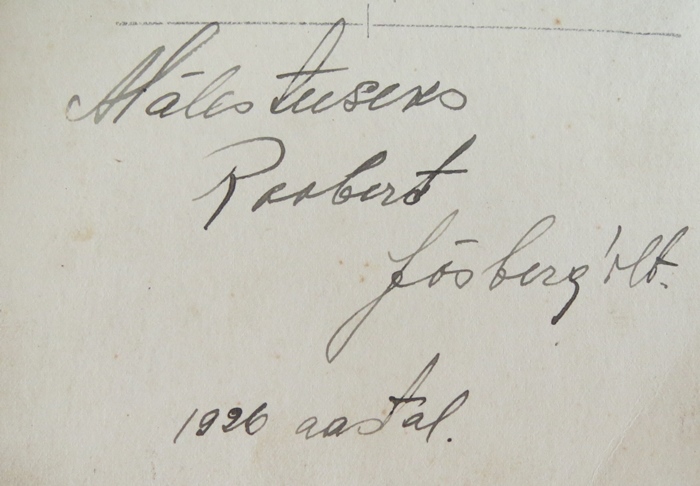 Mälestuseks
Roobert
Jõsberg'ilt.
1926 aastal.